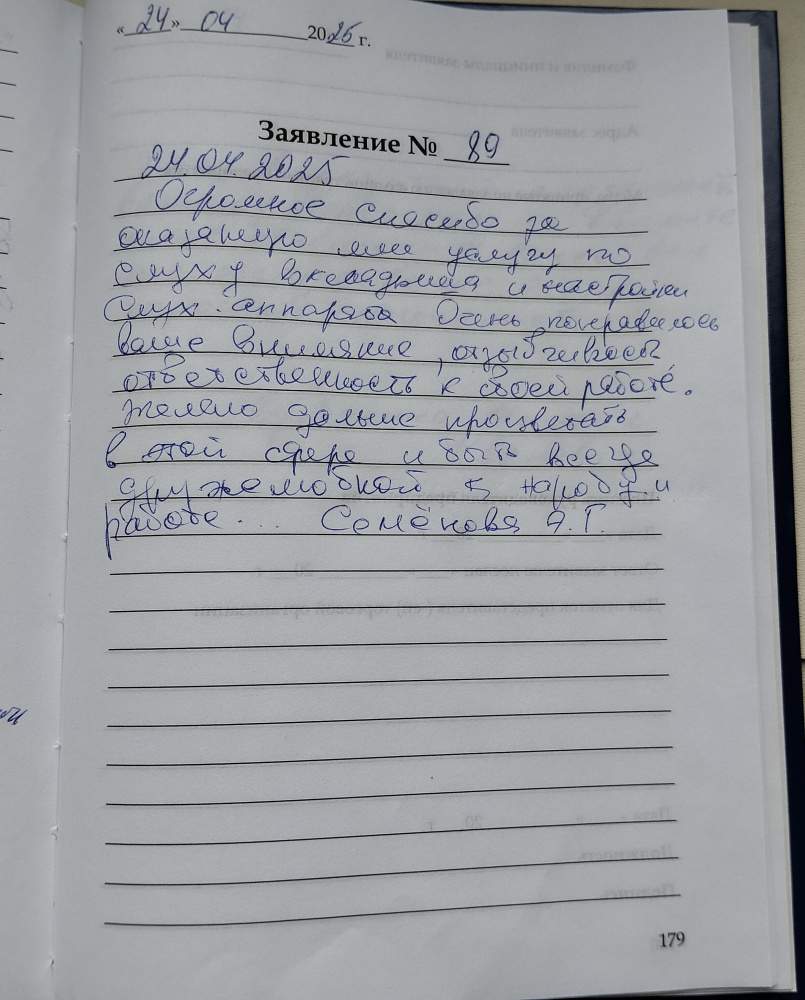 «24» 04 2025 г.
Заявление № 89
24.04.2025
Огромное спасибо за
оказанную мне услугу по
слуху вкладыша и настройки
Слух. аппарата Очень понравилось
ваше внимание, отзывчивость
ответственность к своей работе.
Желаю дальше процветать
в этой сфере и быть всегда
дружелюбной к народу и
работе... Семёнова А.Г.
179